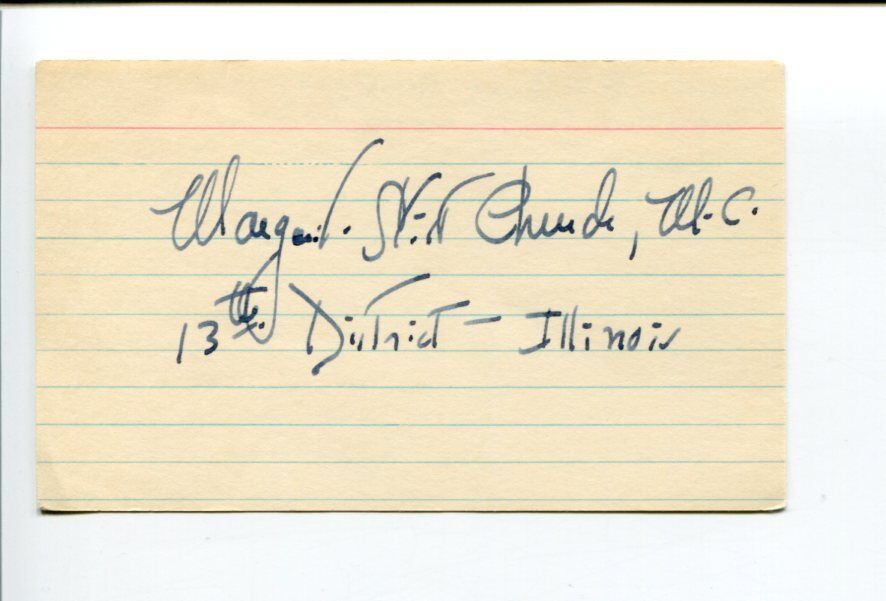 Marguerite Stitt Church, M.C.
13th. District - Illinois